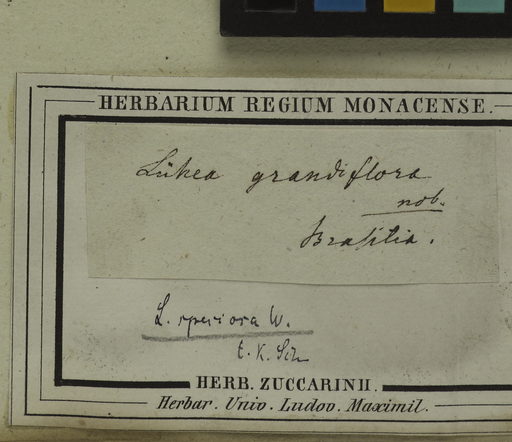 HERBARIUM REGIUM MONACENSE.
Lühea grandiflora
nob.
Brasilia.
L. speciosa W.
t. K. Sch
HERB. ZUCCARINII.
Herbar. Univ. Ludov. Maximil.